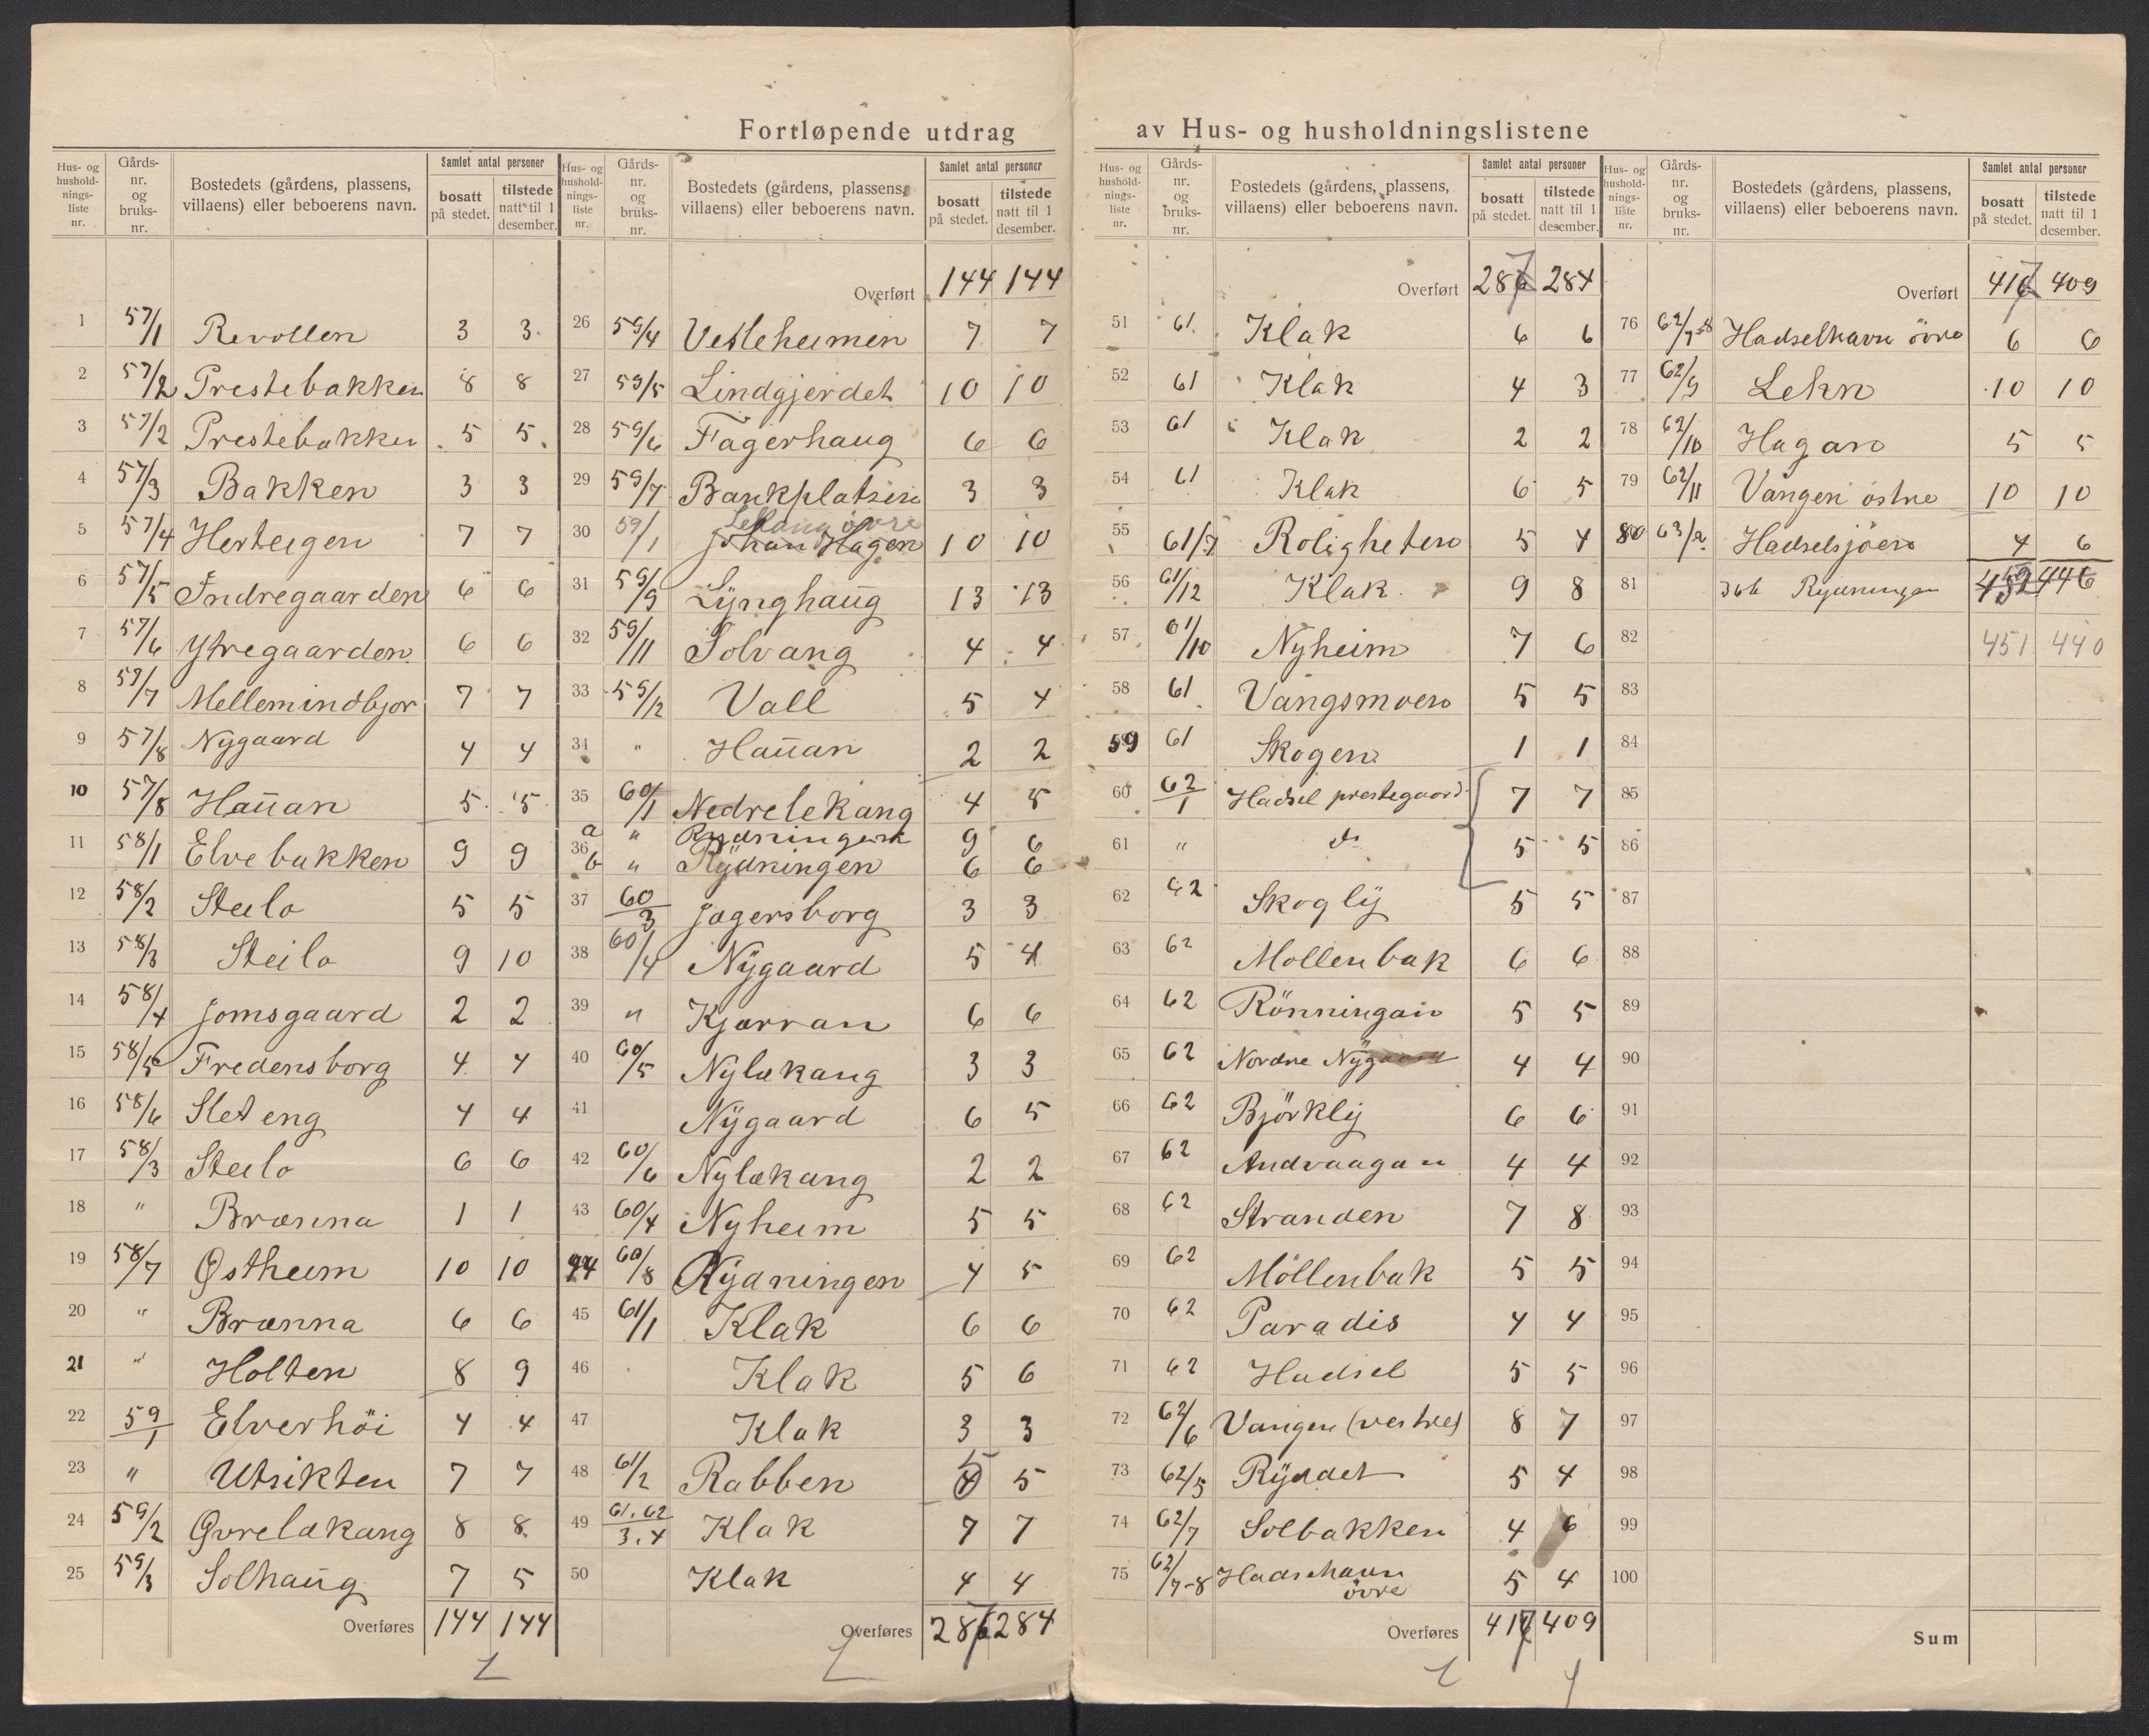 Fortløpende utdrag av Hus- og husholdningslistene
Hus- og husholdningsliste nr. | Gårds- nr. og bruks- nr. | Bostedets (gårdens, plassens, villaens) eller beboerens navn. | Samlet antal personer | bosatt på stedet. | tilstede natt til 1 desember.
1 57/1 Revollen 3 3
2 57/2 Prestebakken 8 8
3 57/2 Prestebakken 5 5
4 57/3 Bakken 3 3
5 57/4 Herteigen 7 7
6 57/5 Indregaarden 6 6
7 57/6 Ytregaarden 6 6
8 57/7 Mellemindbjor 7 7
9 57/8 Nygaard 4 4
10 57/8 Haugan 5 5
11 58/1 Elvebakken 9 9
12 58/2 Steilo 5 5
13 58/3 Steilo 9 10
14 58/4 Jomsgaard 2 2
15 58/5 Fredensborg 4 4
16 58/6 Sleteng 4 4
17 58/3 Steilo 6 6
18 " Brænna 1 1
19 58/7 Østheim 10 10
20 " Brænna 6 6
21 " Holten 8 9
22 59/1 Elverhöi 4 4
23 " Utsikten 7 7
24 59/2 Øvrelækang 8 8
25 59/3 Solhaug 7 5
Overføres 144 144
Hus- og husholdningsliste nr. | Gårds- nr. og bruks- nr. | Bostedets (gårdens, plassens, villaens) eller beboerens navn. | Samlet antal personer | bosatt på stedet. | tilstede natt til 1 desember.
Overført 144 144
26 59/4 Vesleheimen 7 7
27 59/5 Lindgjerdet 10 10
28 59/6 Fagerhaug 6 6
29 59/7 Bankplatsen 3 3
30 59/1 Johan Hagen 10 10
31 59/9 Lynghaug 13 13
32 59/11 Solvang 4 4
33 59/12 Vall 5 4
34 " Haugan 2 2
35 60/1 Nedrelekang 4 5
36 a " Rydningen 9 6
b " Rydningen 6 6
37 60/3 Jægersborg 3 3
38 60/4 Nygaard 5 4
39 " Kjærran 6 6
40 60/5 Nylækang 3 3
41 Nygaard 6 5
42 60/6 Nylækang 2 2
43 60/4 Nyheim 5 5
44 60/8 Rydningen 4 5
45 61/1 Klak 6 6
46 Klak 5 6
47 Klak 3 3
48 61/2 Rabben 4 5 5
49 61.62/3.4 Klak 7 7
50 Klak 4 4
Overføres 287 284
Hus- og husholdningsliste nr. | Gårds- nr. og bruks- nr. | Bostedets (gårdens, plassens, villaens) eller beboerens navn. | Samlet antal personer | bosatt på stedet. | tilstede natt til 1 desember.
Overført 287 284
51 61 Klak 6 6
52 61 Klak 4 3
53 61 Klak 2 2
54 61 Klak 6 5
55 61/7 Roligheten 5 4
56 61/12 Klak 9 8
57 61/10 Nyheim 7 6
58 61 Vangsmoen 5 5
59 61 Skogen 1 1
60 62/1 Hadsel prestegaard 7 7
61 " do 5 5
62 62 Skogly 5 5
63 62 Mollenbak 6 6
64 62 Rönningan 5 5
65 62 Nordre Nygaard 4 4
66 62 Björkly 6 6
67 62 Andvaagan 4 4
68 62 Stranden 7 8
69 62 Möllenbak 5 5
70 62 Paradis 4 4
71 62 Hadsel 5 5
72 62/6 Vangen (vestre) 8 7
73 62/5 Ryddet 5 4
74 62/7 Solbakken 4 6
75 62/7-8 Hadselhavn
övre 5 4
Overføres 417 409
Hus- og husholdningsliste nr. | Gårds- nr. og bruks- nr. | Bostedets (gårdens, plassens, villaens) eller beboerens navn. | Samlet antal personer | bosatt på stedet. | tilstede natt til 1 desember.
Overført 417 409
76 62/7-8 Hadselhavn övre 6 6
77 62/9 Lekn 10 10
78 62/10 Hagan 5 5
79 62/11 Vangen östre 10 10
80 63/2 Hadselsjöen 4 6
81 36b Rydningen 446
82 451 440
83
84
85
86
87
88
89
90
91
92
93
94
95
96
97
98
99
100
Sum